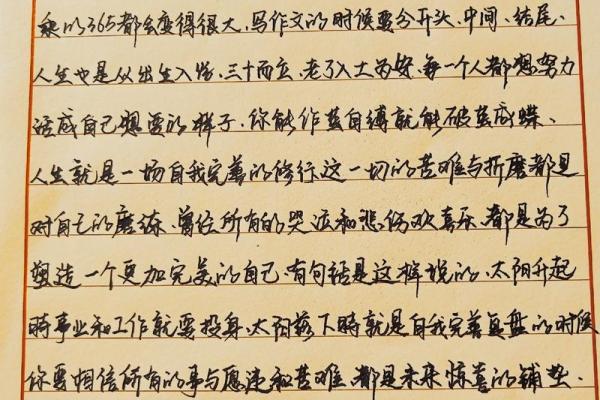 乘以365都会变得很大、写作文的时候要分开头、中间、结尾、
人生也是从出生入学、三十而立、老了入土为安、每一个人都想努力
活成自己想要的样子、你能作茧自缚就能破茧成蝶、
人生就是一场自我完善的修行这一切的苦难与折磨都是
对自己的磨练、曾经所有的哭泣和悲伤欢喜乐、都是为了
塑造一个更加完美的自己、有句话是这样说的、太阳升起
時事业和工作就要投身、太阳落下時就是自我完善复盘的时候
你要相信所有的事与愿违和苦难、都是未来惊喜的铺垫.